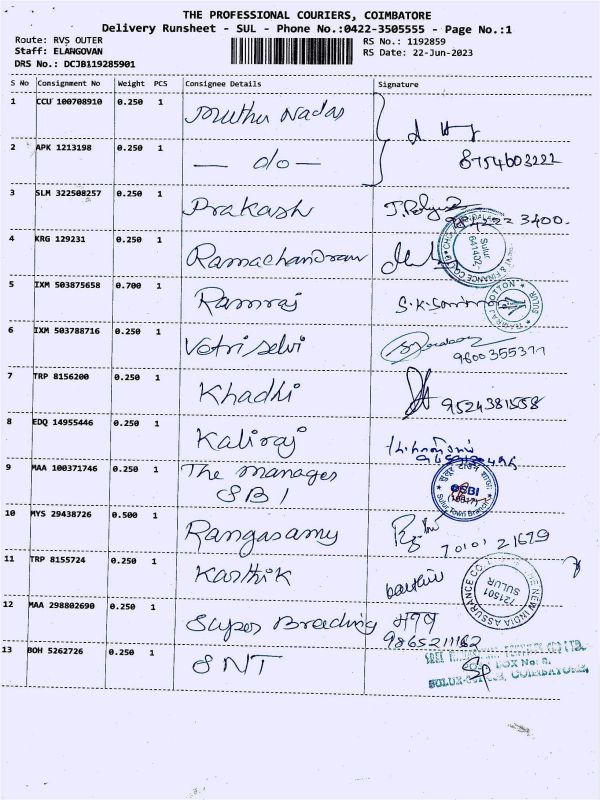 THE PROFESSIONAL COURIERS, COIMBATORE
Delivery Runsheet - SUL - Phone No.:0422-3505555 - Page No.:1
Route: RVS OUTER
RS No.: 1192859
Staff: ELANGOVAN
RS Date: 22-Jun-2023
DRS No.: DCJB119285901
S No Consignment No Weight PCS Consignee Details Signature
1 CCU 100708910 0.250 1 Muthu Nadar
2 APK 1213198 0.250 1 — do — 8754603222
3 SLM 322508257 0.250 1 Prakash
4 KRG 129231 0.250 1 Ramachandran
Sulur
641402
5 IXM 503875658 0.700 1 Ramraj S.K.
RAMRAJ COTTON
SULUR
6 IXM 503788716 0.250 1 Vetri Selvi
9600355377
7 TRP 8156200 0.250 1 Khadhi 9524381558
8 EDQ 14955446 0.250 1 Kaliraj
9 MAA 100371746 0.250 1 The Manager
SBI
SBI
Sulur Town Branch
10 MYS 29438726 0.500 1 Rangasamy
7010121679
11 TRP 8155724 0.250 1 Karthik
THE NEW INDIA ASSURANCE CO.
721501
SULUR
12 MAA 298802690 0.250 1 Super Breading
13 BOH 5262726 0.250 1 SNT
BOX No: 8.
COIMBATORE